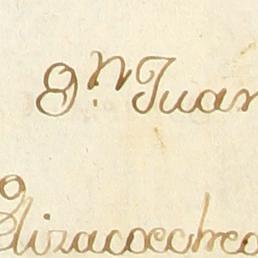 Dn Juan
Elizacoechea